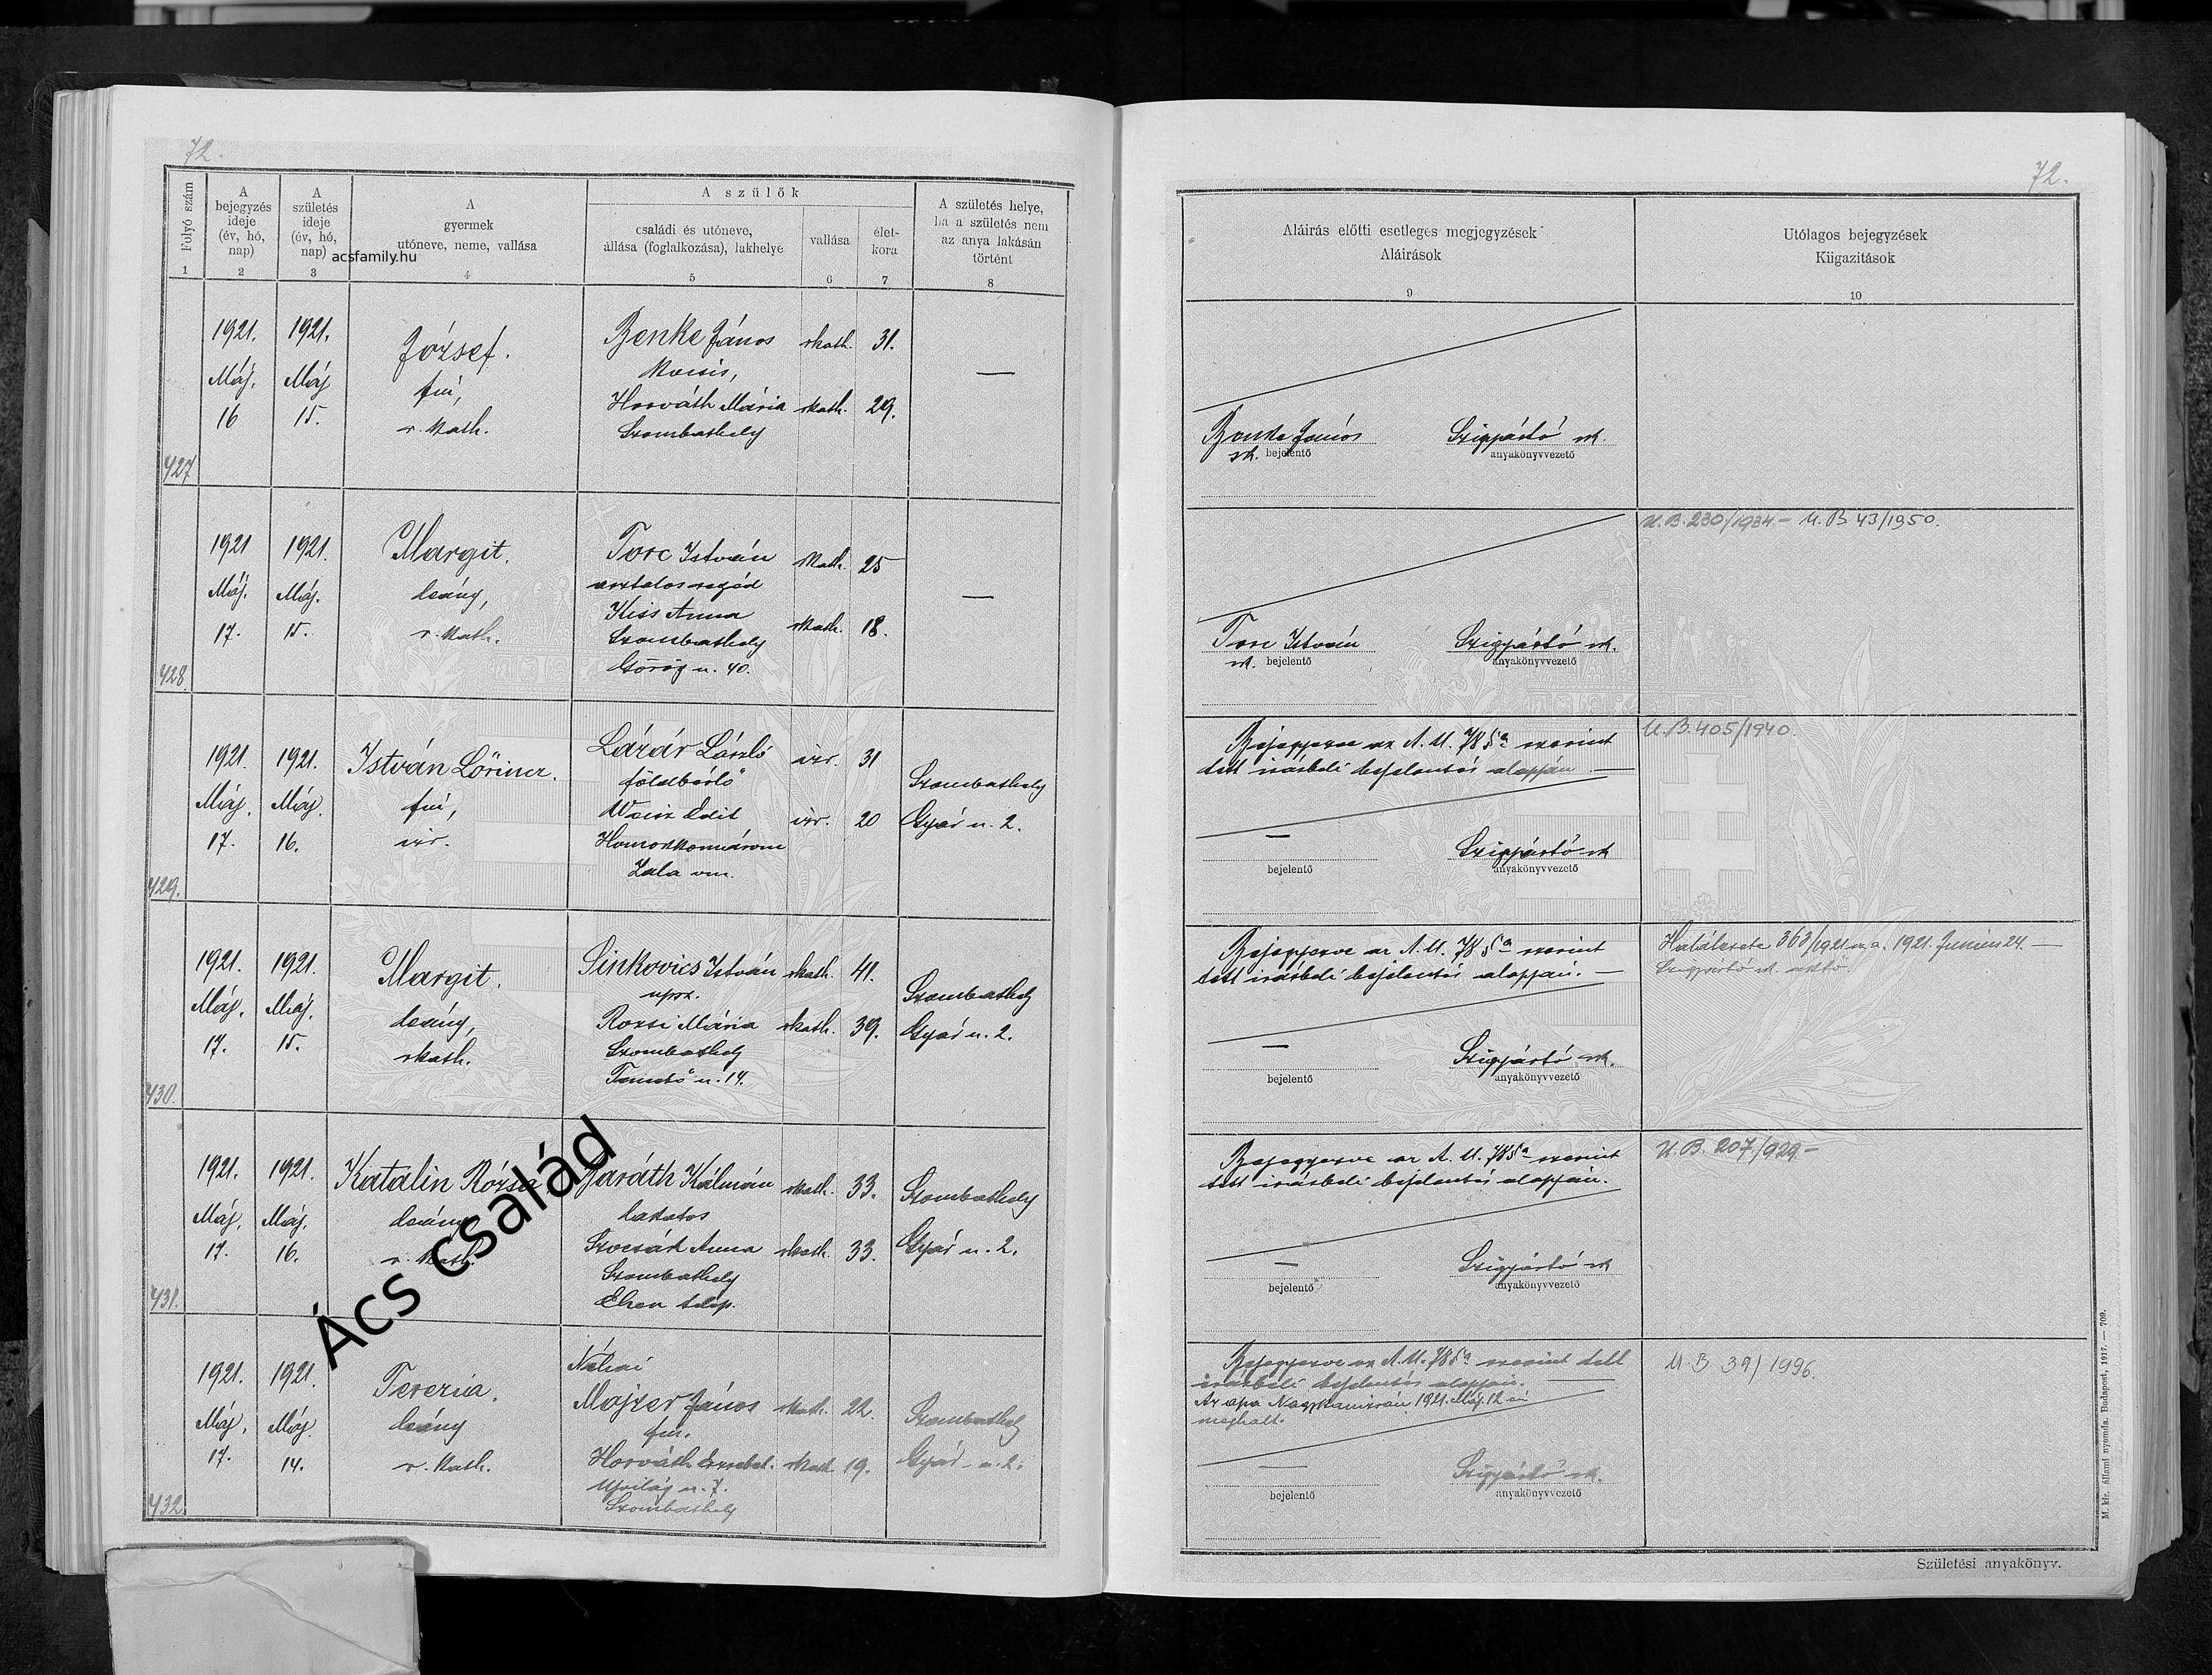 72.
Folyó szám
1
A
bejegyzés
ideje
(év, hó,
nap)
2
A
születés
ideje
(év, hó,
nap)
3
acsfamily.hu
A
gyermek
utóneve, neme, vallása
4
A szülők
családi és utóneve,
állása (foglalkozása), lakhelye
5
vallása
6
élet-
kora
7
A születés helye,
ha a születés nem
az anya lakásán
történt
8
427
1921. Máj. 16
1921. Máj 15.
József.
fiú,
r. kath.
Benke János rkath. 31.
kocsis,
Horváth Mária rkath. 29.
Szombathely
—
428
1921 Máj. 17.
1921. Máj. 15.
Margit.
leány,
r. kath.
Torc István rkath. 25
asztalos segéd
Kiss Anna rkath. 18.
Szombathely
Görög u. 40.
—
429.
1921. Máj. 17.
1921. Máj. 16.
István Lőrincz.
fiú,
izr.
Lázár László izr. 31
földbérlő
Weisz Edit izr. 20
Homokkomárom
Zala vm.
Szombathely
Gyár u. 2.
430.
1921. Máj. 17.
1921. Máj. 15.
Margit.
leány,
rkath.
Sinkovics István rkath. 41.
npsz.
Rozsi Mária rkath. 39.
Szombathely
Temető u. 14.
Szombathely
Gyár u. 2.
431.
1921. Máj. 17.
1921. Máj. 16.
Katalin Rózsa
leány
r. kath.
Baráth Kálmán rkath. 33.
lakatos
Anna rkath. 33.
Szombathely
telep.
Szombathely
Gyár u. 2.
432
1921. Máj. 17.
1921. Máj. 14.
Terezia.
leány
r. kath.
Néhai
Majzer János rkath. 22.
Horváth Erzsébet. rkath. 19.
Ujvilág u. 7.
Szombathely
Szombathely
Gyár u. 2.
Ács család
72.
Aláírás előtti esetleges megjegyzések
Aláírások
9
Utólagos bejegyzések
Kiigazítások
10
Benke János Szigyártó sk.
sk. bejelentő anyakönyvvezető
U. B. 230/1934.— U. B. 43/1950.
Torc István Szigyártó sk.
sk. bejelentő anyakönyvvezető
Bejegyezve az A. U. 78 §a szerint
tett irásbeli bejelentés alapján. —
U. B. 405/1940.
— Szigyártó sk
bejelentő anyakönyvvezető
Bejegyezve az A. U. 78 §a szerint
tett irásbeli bejelentés alapján. —
Halálesete 363/1921 sz. a. 1921. Junius 24. —
Szigyártó sk.
— Szigyártó sk.
bejelentő anyakönyvvezető
Bejegyezve az A. U. 78 §a szerint
tett irásbeli bejelentés alapján.
U. B. 207/929.—
— Szigyártó sk
bejelentő anyakönyvvezető
Bejegyezve az A. U. 78 §a szerint tett
irásbeli bejelentés alapján. —
Az apa Nagykanizsán 1921. Máj. 12 én
meghalt.
U. B. 39/1996.
— Szigyártó sk.
bejelentő anyakönyvvezető
M. kir. állami nyomda. Budapest, 1917. — 709.
Születési anyakönyv.